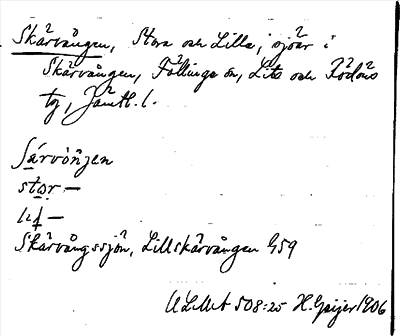 Skärvången, Stora och Lilla, sjöar i
Skärvången, Föllinge sn, Lits och Rödöns
tg, Jämtl. l.
Särvönʒen
stor —
lıł —
Skärvångssjön, Lillskärvången G59
ULMA 508:25 H. Geijer 1906